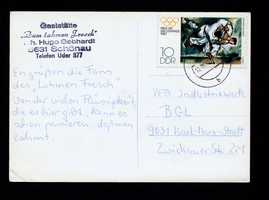 Gaststätte
"Zum lahmen Frosch"
h. Hugo Gebhardt
5631 Schönau
Telefon Uder 577
Es grüßen die Fans
des „Lahmen Frosch"
Von der vielen Flüssigkeit,
die es hier gibt, kann es
schon passieren, daß man
lahmt.
10
DDR
VEB Industriewerke
BGL
9031 Karl-Marx-Stadt
Zwickauer Str. 221